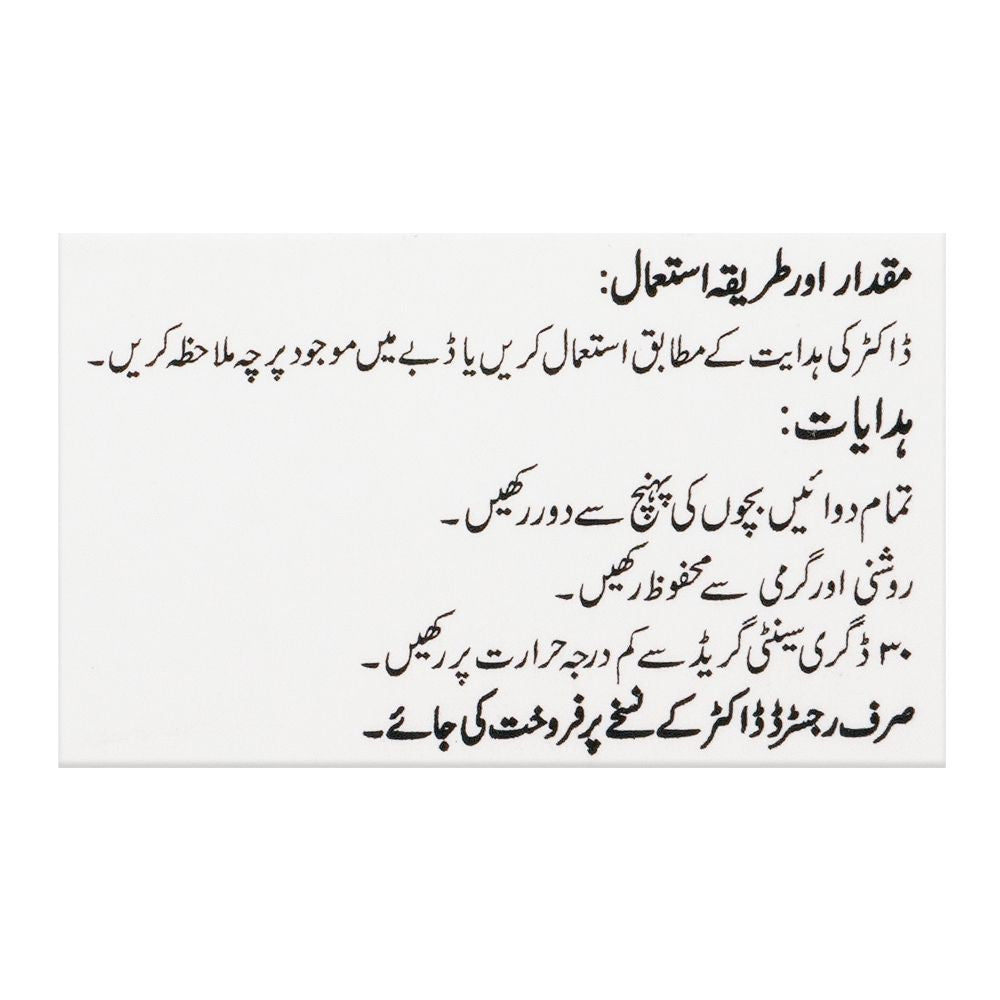 مقدار اور طریقہ استعمال:
ڈاکٹر کی ہدایت کے مطابق استعمال کریں یا ڈبے میں موجود پرچہ ملاحظہ کریں۔
ہدایات:
تمام دوائیں بچوں کی پہنچ سے دور رکھیں۔
روشنی اور گرمی سے محفوظ رکھیں۔
۳۰ ڈگری سینٹی گریڈ سے کم درجہ حرارت پر رکھیں۔
صرف رجسٹرڈ ڈاکٹر کے نسخے پر فروخت کی جائے۔